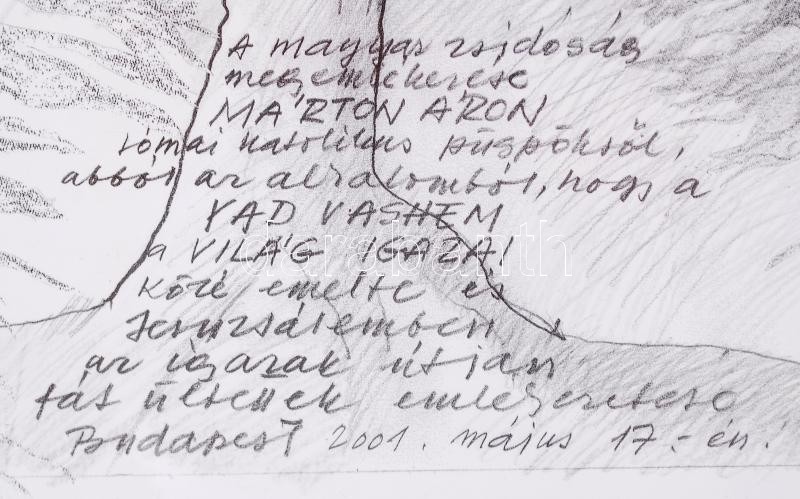 A magyar zsidóság
megemlékezése
MÁRTON ÁRON
római katolikus püspökről,
abból az alkalomból, hogy a
YAD VASHEM
a VILÁG IGAZAI
közé emelte és
Jeruzsálemben
az igazak útján
fát ültetnek emlékezetére
Budapest 2001. május 17.-én!
darabanth